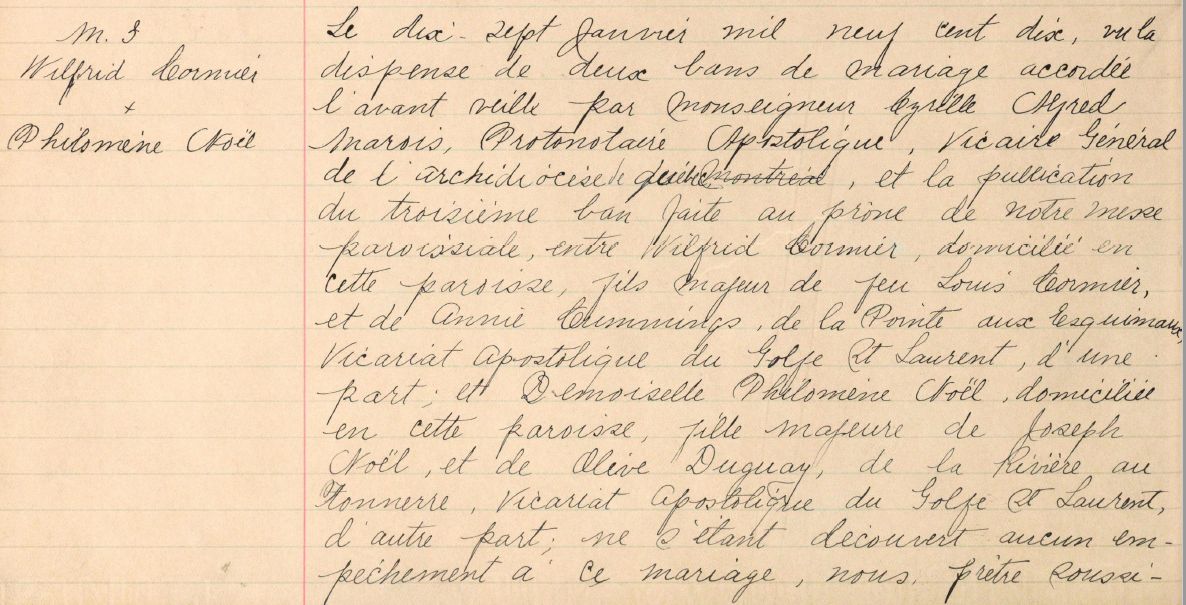 M. 3
Wilfrid Cormier
+
Philomène Noël
Le dix-sept Janvier mil neuf cent dix, vu la
dispense de deux bans de mariage accordée
l'avant veille par Monseigneur Cyrille Alfred
Marois, Protonotaire Apostolique, Vicaire Général
de l'archidiocèse de Québec Montréal, et la publication
du troisième ban faite au prône de notre messe
paroissiale, entre Wilfrid Cormier, domicilié en
cette paroisse, fils majeur de feu Louis Cormier,
et de Annie Cummings, de la Pointe aux Esquimaux,
Vicariat Apostolique du Golfe St Laurent, d'une
part; et Demoiselle Philomène Noël, domiciliée
en cette paroisse, fille majeure de Joseph
Noël, et de Olive Duguay, de la Rivière au
Tonnerre, Vicariat Apostolique du Golfe St Laurent,
d'autre part; ne s'étant découvert aucun em-
pêchement à ce mariage, nous, prêtre soussi-